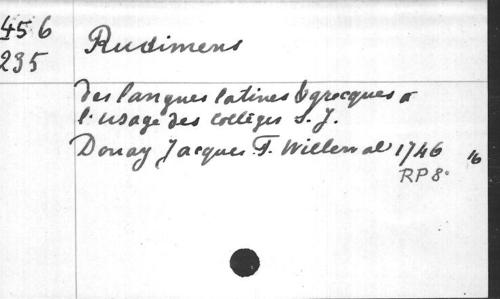 456
235
Rudimens
des langues latines & grecques a
l'usage des colleges S. J.
Douay Jacques F. Willerval 1746 16
RP 8°